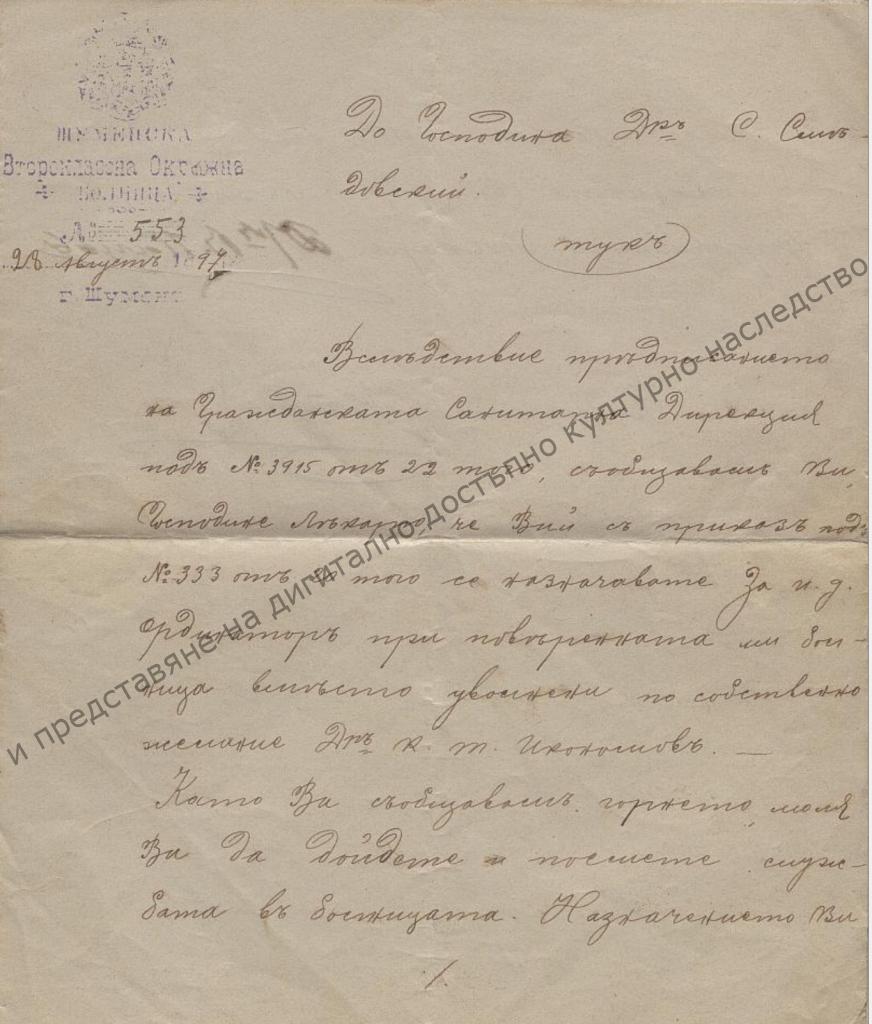 ШУМЕНСКА
Второкласна Окръжна
БОЛНИЦА
№ 553
28 Августъ 1897
г. Шуменъ
До Господина Дръ С. Сим-
довский.
тукъ
Вслѣдствие прѣдписанието
на Гражданската Санитарна Дирекция
подъ № 3915 отъ 22 того, съобщавамъ Ви,
Господине Лѣкарю, че Вий съ приказъ подъ
№ 333 отъ того се назначавате За и. д.
Ординаторъ при повѣренната ми бол-
ница вмѣсто уволнени по собственно
желание Дръ К. Т. Икономовъ. —
Като Ви съобщавамъ горнето, моля
Ви да дойдете и поемете служ-
бата въ болницата. Назначението Ви
./.
и представяне на дигитално достъпно културно наследство